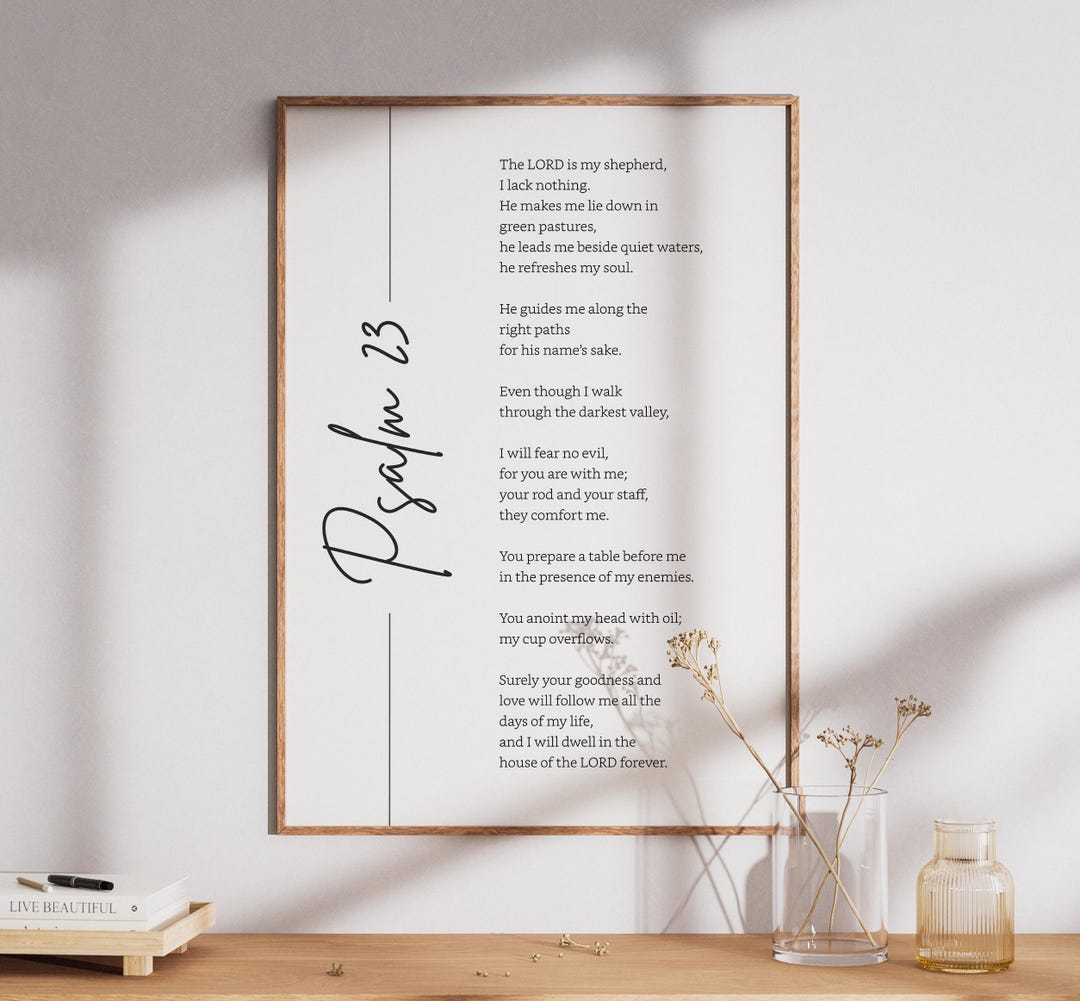 Psalm 23
The LORD is my shepherd,
I lack nothing.
He makes me lie down in
green pastures,
he leads me beside quiet waters,
he refreshes my soul.
He guides me along the
right paths
for his name's sake.
Even though I walk
through the darkest valley,
I will fear no evil,
for you are with me;
your rod and your staff,
they comfort me.
You prepare a table before me
in the presence of my enemies.
You anoint my head with oil;
my cup overflows.
Surely your goodness and
love will follow me all the
days of my life,
and I will dwell in the
house of the LORD forever.
LIVE BEAUTIFUL